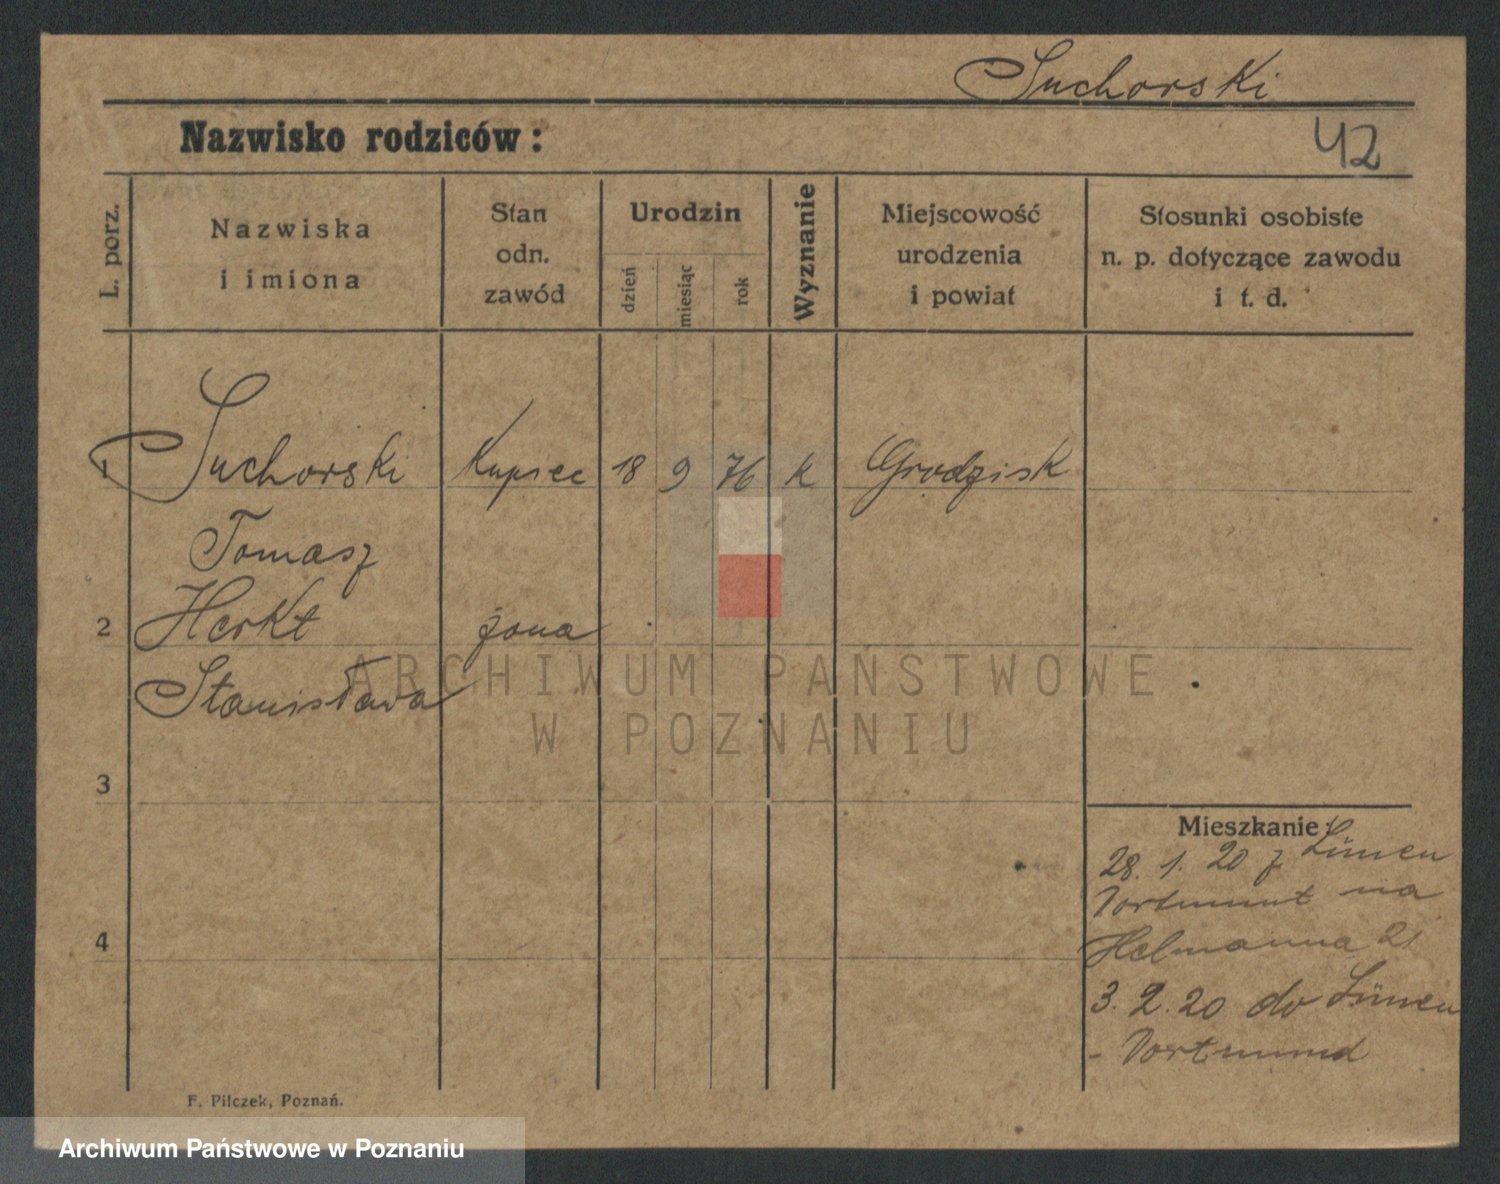 Suchorski
Nazwisko rodziców:
42
L. porz.
Nazwiska
i imiona
Stan
odn.
zawód
Urodzin
dzień
miesiąc
rok
Wyznanie
Miejscowość
urodzenia
i powiat
Stosunki osobiste
n. p. dotyczące zawodu
i t. d.
1 Suchorski Kupiec 18 9 76 k Grodzisk
Tomasz
2 Herkt żona
Stanisława
ARCHIWUM PAŃSTWOWE
W POZNANIU
3
Mieszkanie:
28. 1. 20 z Lünen
Dortmunt na
4
Helmanna 21
3. 2. 20 do Lünen
- Dortmund
F. Pilczek, Poznań.
Archiwum Państwowe w Poznaniu